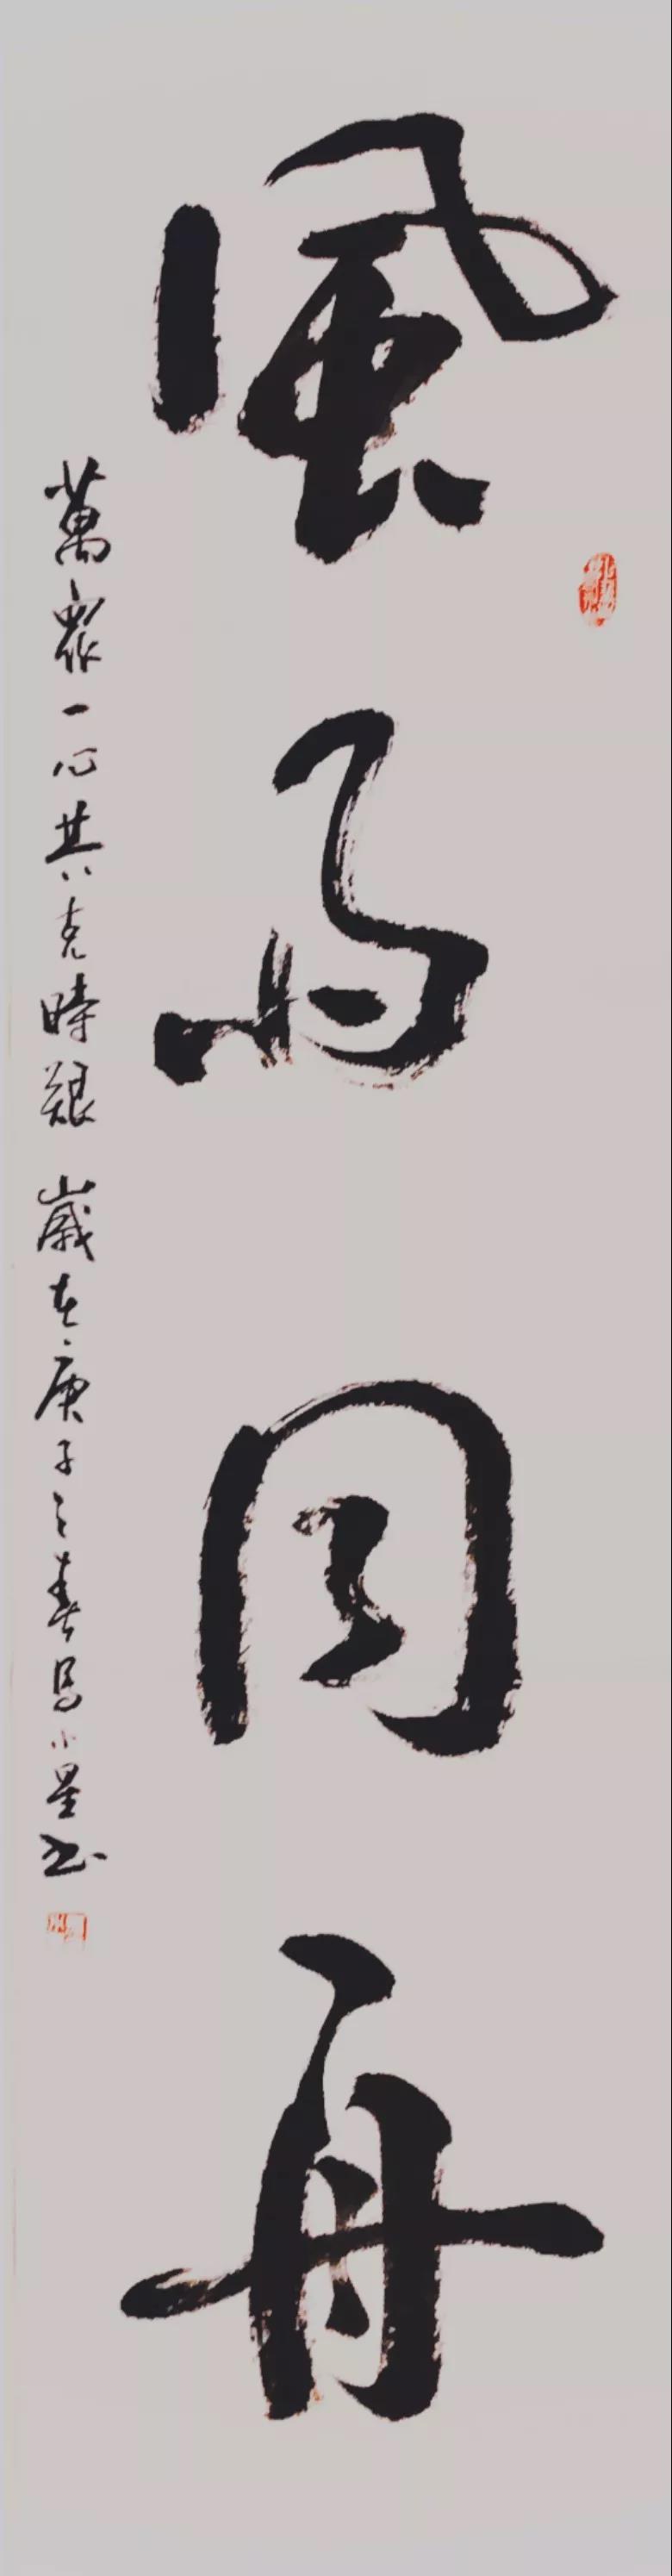 風雨同舟
萬眾一心共克時艱 歲在庚子之春馮小星书